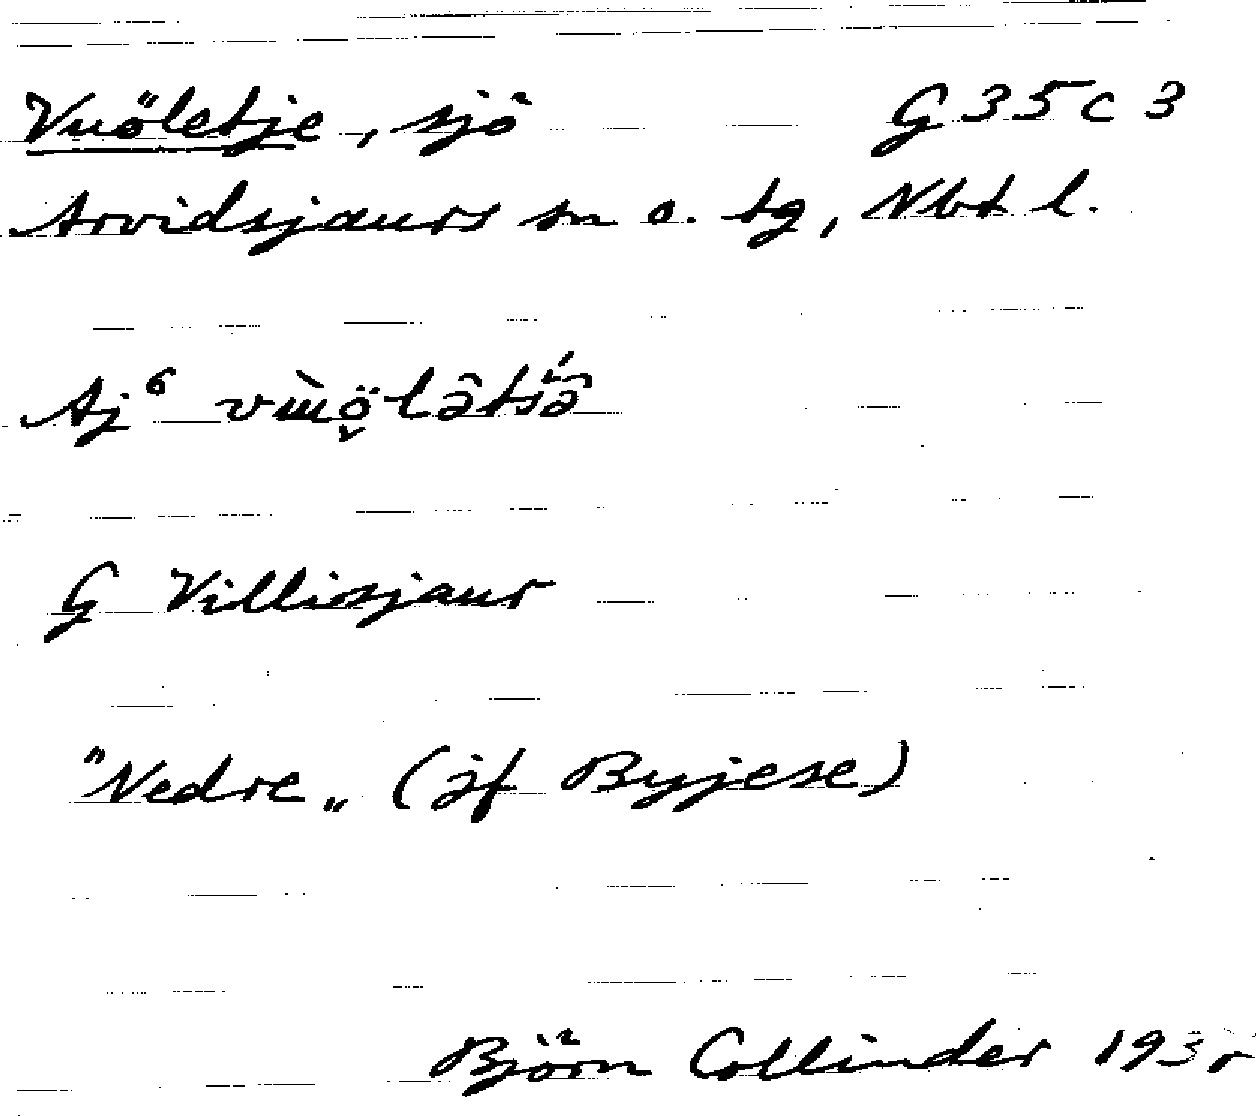 Vuöletje, sjö G 35 c 3
Arvidsjaurs sn o. tg, Nbt l.
Aj⁶
G Villisjaur
"Nedre" (jf Byjese)
Björn Collinder